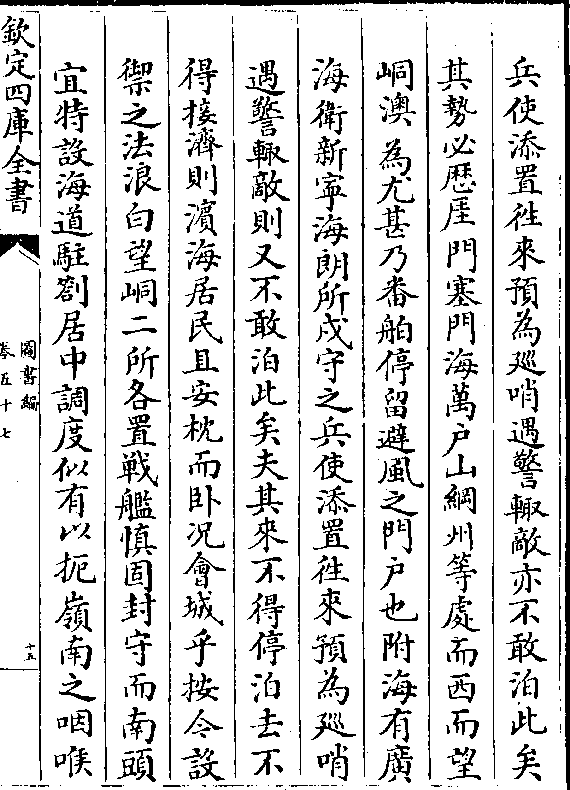 兵使添置往來預為廵哨遇警輙敵亦不敢泊此矣
其勢必歴厓門塞門海萬户山綱州等處而西而望
峒澳為尤甚乃番舶停留避風之門户也附海有廣
海衛新寧海朗所戍守之兵使添置往來預為廵哨
遇警輙敵則又不敢泊此矣夫其來不得停泊去不
得接濟則濵海居民且安枕而卧况會城乎按今設
禦之法浪白望峒二所各置戰艦慎固封守而南頭
宜特設海道駐劄居中調度似有以扼嶺南之咽喉
欽定四庫全書
圖書編
卷五十七
十五